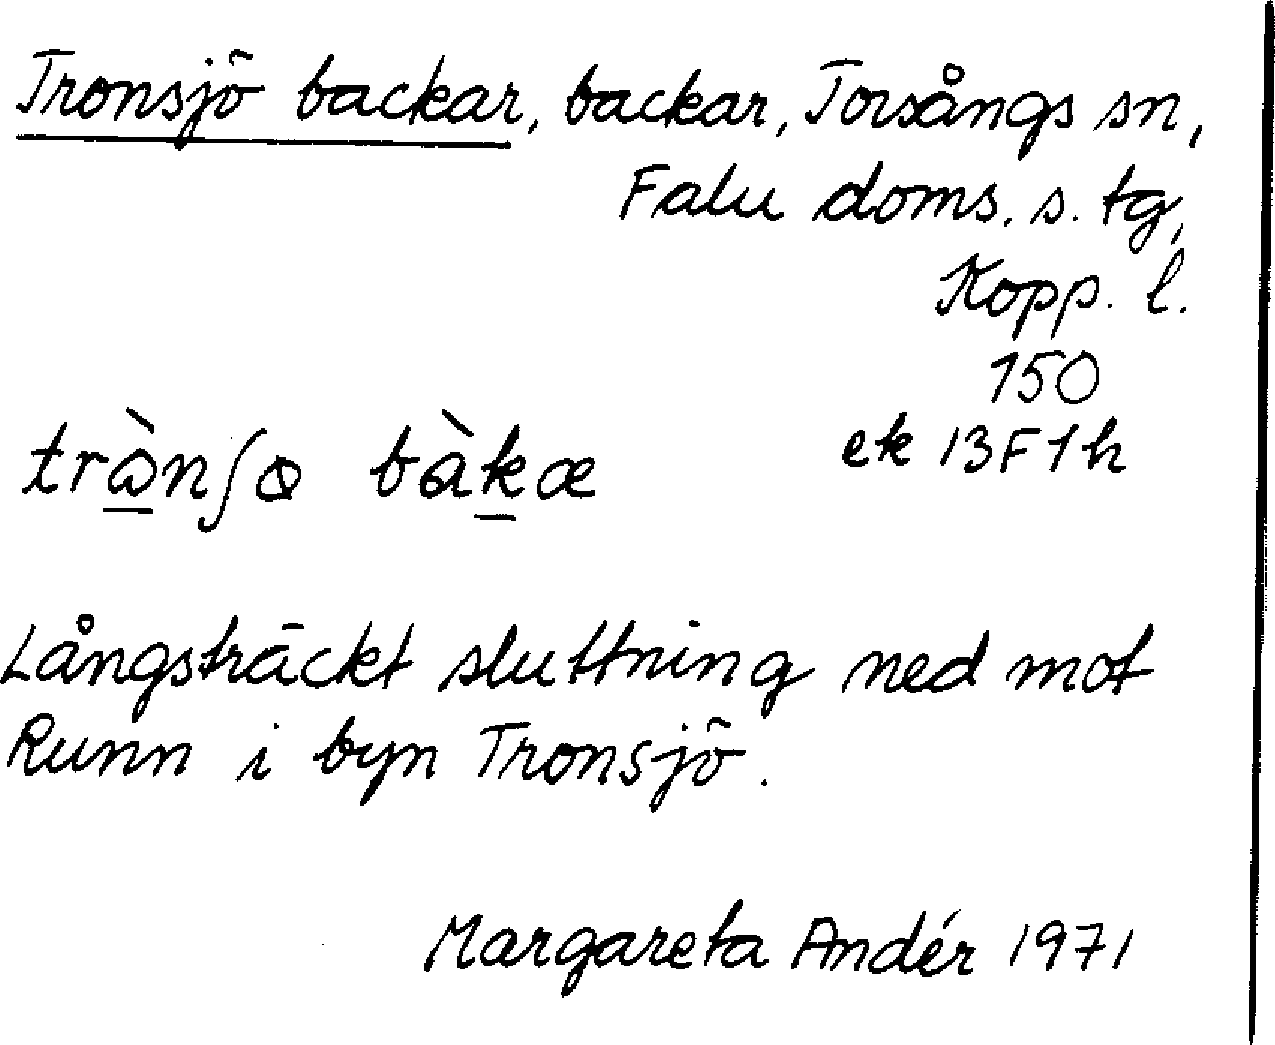 Tronsjö backar, backar, Torsångs sn,
Falu doms. s. tg,
Kopp. l.
150
ek 13F1h
Långsträckt sluttning ned mot
Runn i byn Tronsjö.
Margareta Andér 1971